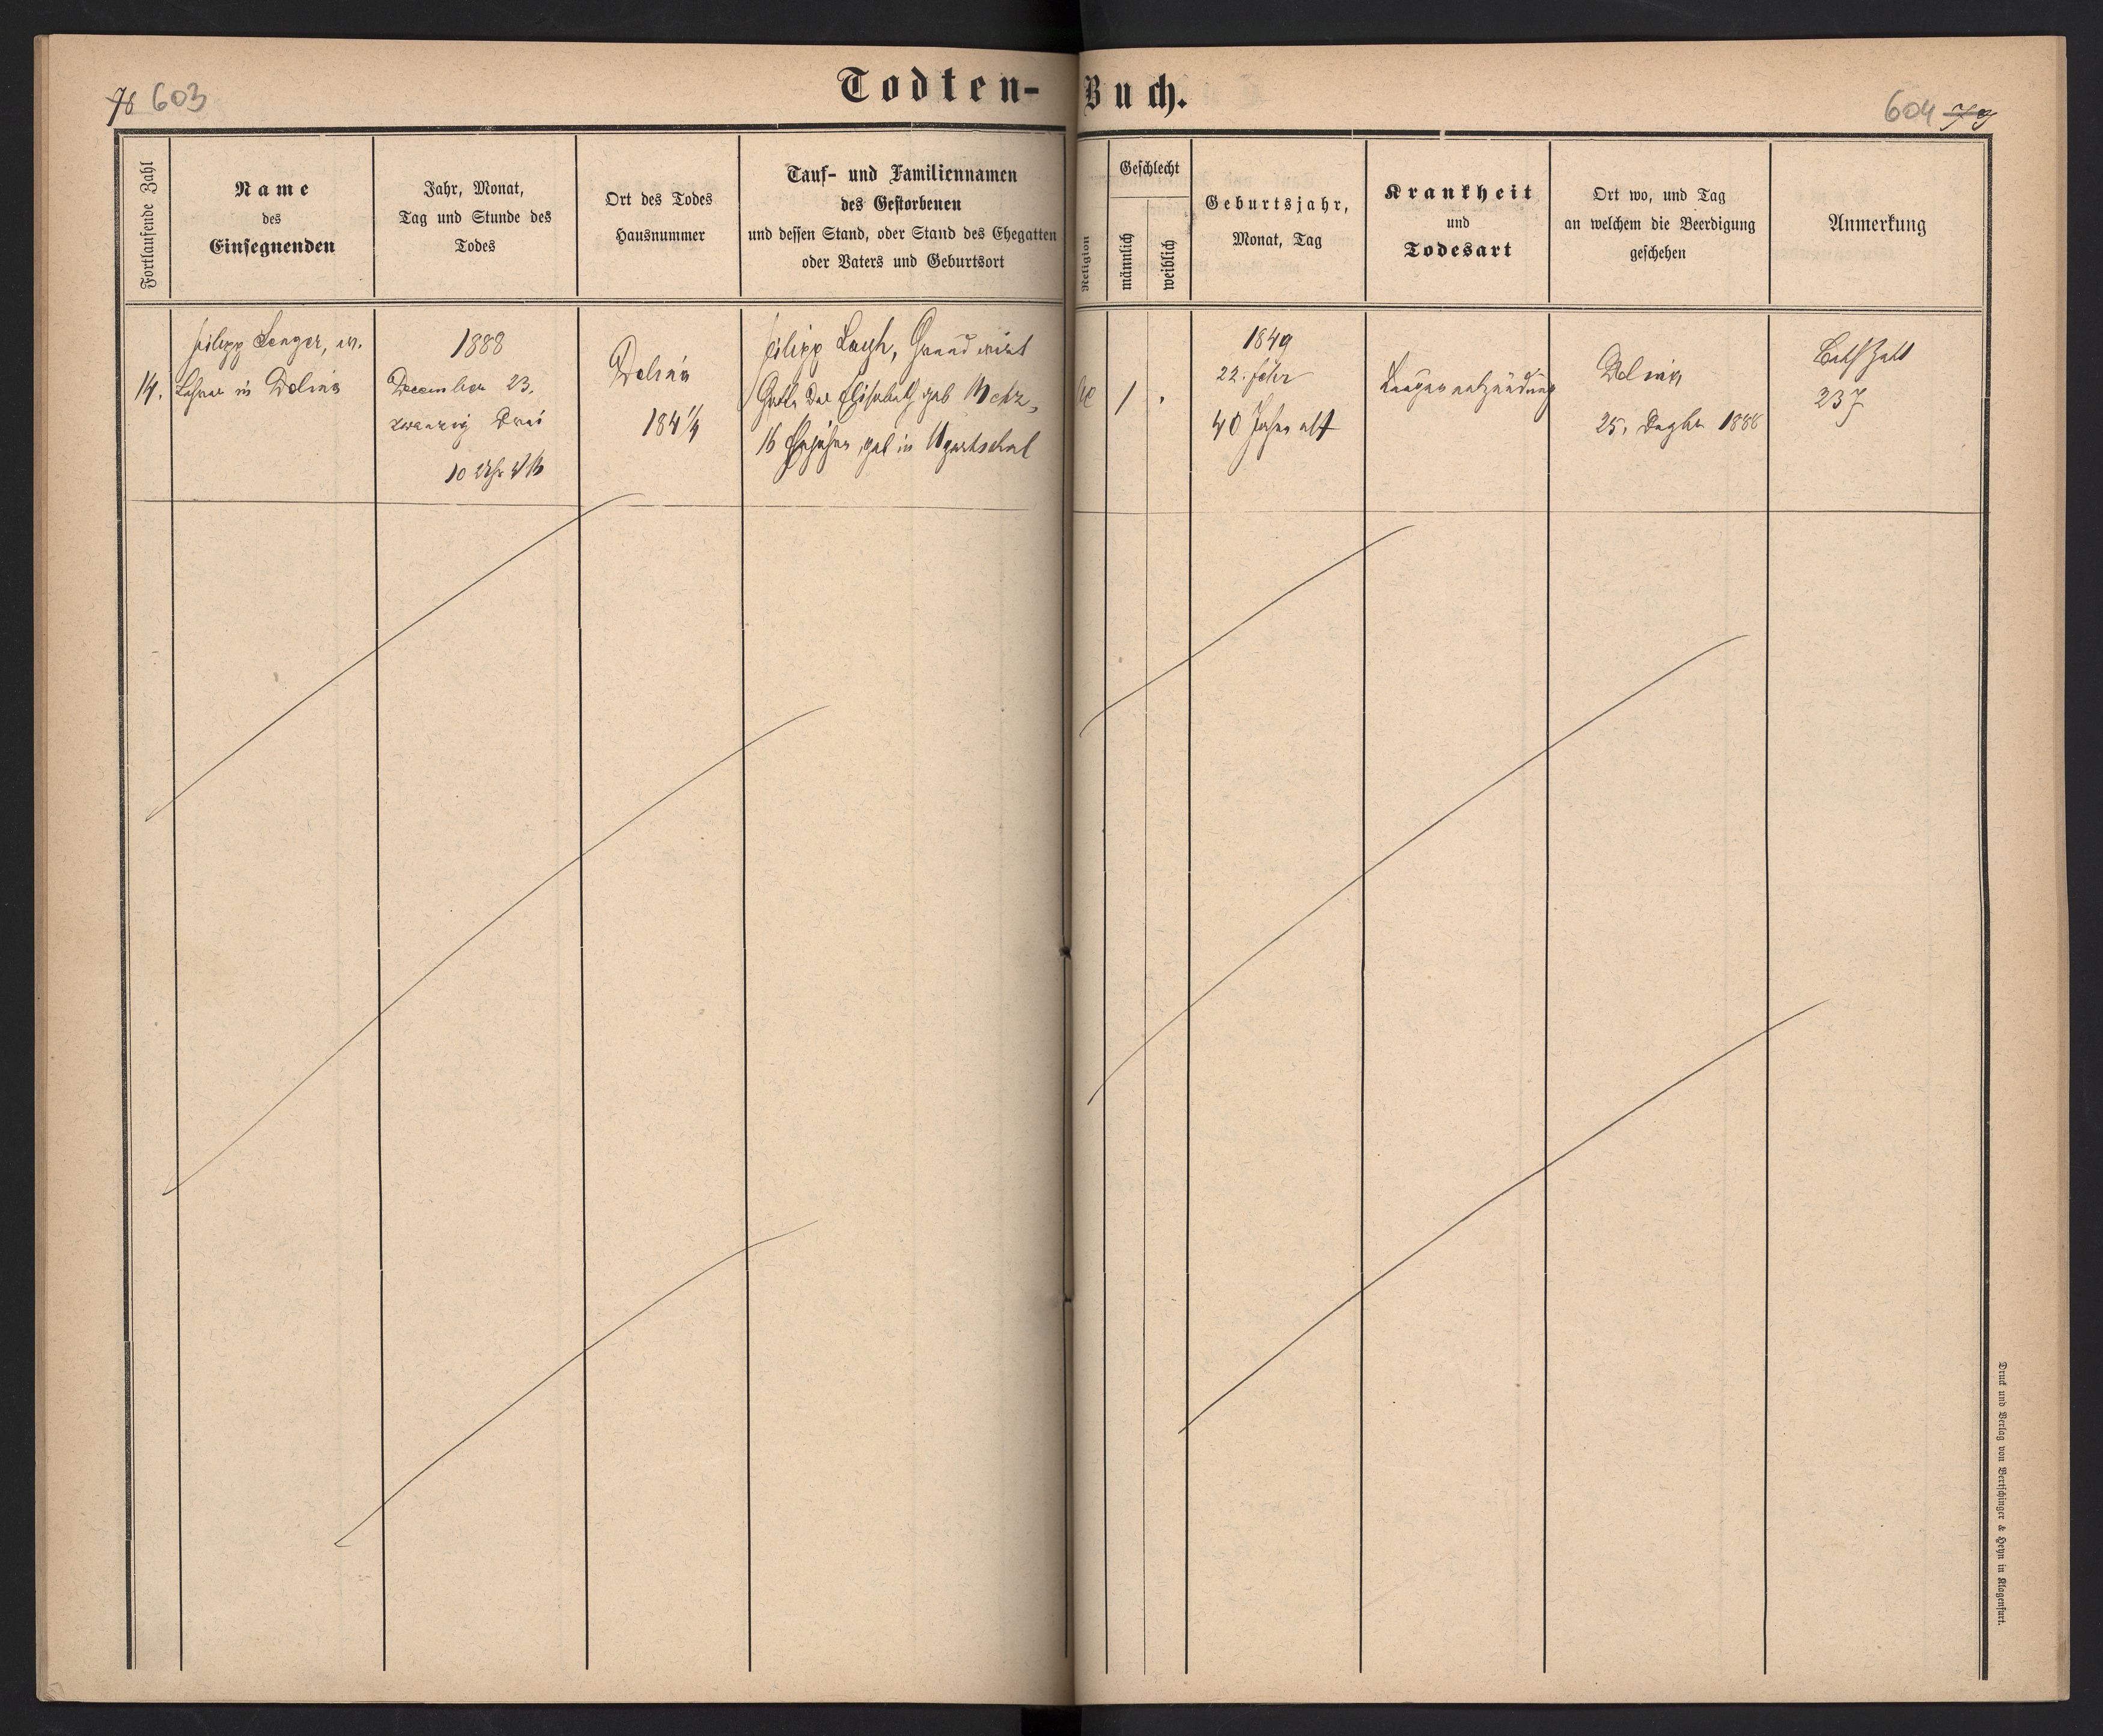 78 603
Todten-Buch.
604 79
Fortlaufende Zahl
Name
des
Einsegnenden
Jahr, Monat,
Tag und Stunde des
Todes
Ort des Todes
Hausnummer
Tauf- und Familiennamen
des Gestorbenen
und dessen Stand, oder Stand des Ehegatten
oder Vaters und Geburtsort
Religion
Geschlecht
männlich
weiblich
Geburtsjahr,
Monat, Tag
Krankheit
und
Todesart
Ort wo, und Tag
an welchem die Beerdigung
geschehen
Anmerkung
14.
Filipp Lenger, ev.
Lehrer in Dolina
1888
December 23.
zwanzig Drei
10 Uhr
Dolina
184 1/4
Filipp Grundwirt
Gatte der Elisabeth geb
16 Ehejahre, geb in Ugartsthal
1
1849
22. Feber
40 Jahre alt
Lungenentzündung
Dolina
25. 1888
237
Druck und Verlag von Bertschinger & Heyn in Klagenfurt.